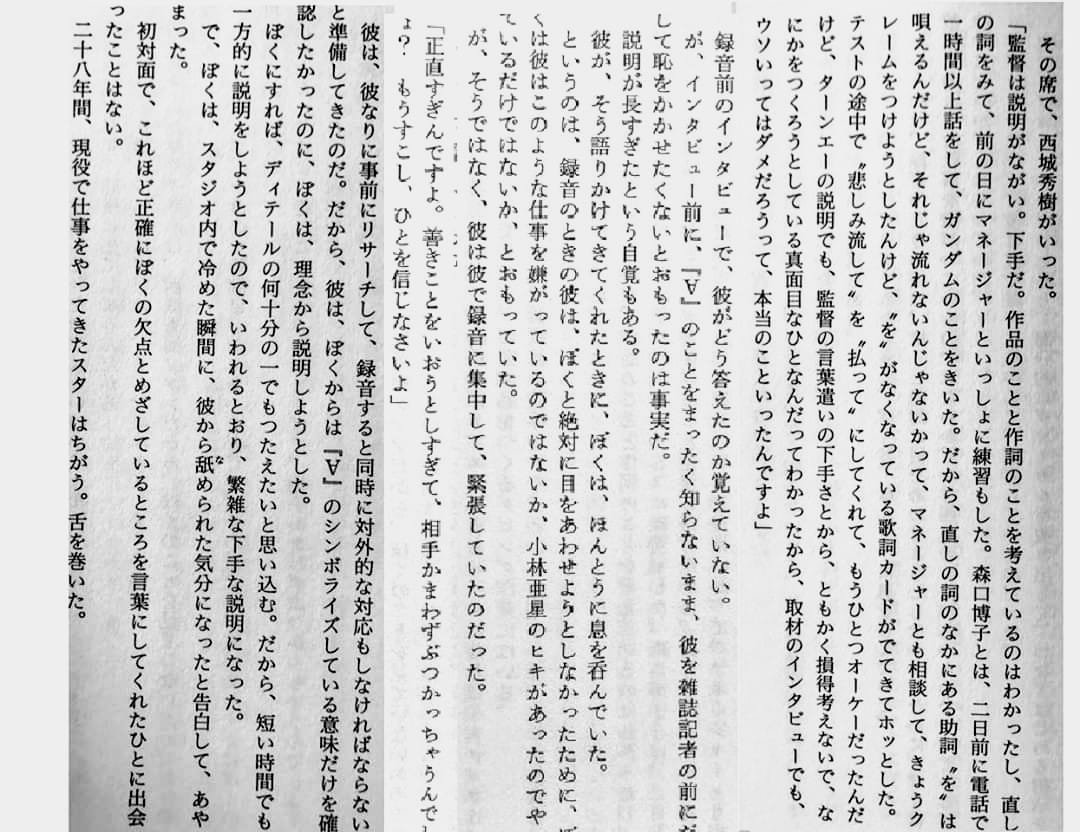 その席で、西城秀樹がいった。
「監督は説明がながい。下手だ。作品のことと作詞のことを考えているのはわかったし、直し
の詞をみて、前の日にマネージャーといっしょに練習もした。森口博子とは、二日前に電話で
一時間以上話をして、ガンダムのことをきいた。だから、直しの詞のなかにある助詞〝を〟は
唄えるんだけど、それじゃ流れないんじゃないかって、マネージャーとも相談して、きょうク
レームをつけようとしたんけど、〝を〟がなくなっている歌詞カードがでてきてホッとした。
テストの途中で〝悲しみ流して〟を〝払って〟にしてくれて、もうひとつオーケーだったんだ
けど、ターンエーの説明でも、監督の言葉遣いの下手さとから、ともかく損得考えないで、な
にかをつくろうとしている真面目なひとなんだってわかったから、取材のインタビューでも、
ウソいってはダメだろうって、本当のこといったんですよ」
録音前のインタビューで、彼がどう答えたのか覚えていない。
が、インタビュー前に、『∀』のことをまったく知らないまま、彼を雑誌記者の前にだ
して恥をかかせたくないとおもったのは事実だ。
説明が長すぎたという自覚もある。
彼が、そう語りかけてきてくれたときに、ぼくは、ほんとうに息を呑んでいた。
というのは、録音のときの彼は、ぼくと絶対に目をあわせようとしなかったために、ぼ
くは彼はこのような仕事を嫌がっているのではないか、小林亜星のヒキがあったのでや
ているだけではないか、とおもっていた。
が、そうではなく、彼は彼で録音に集中して、緊張していたのだった。
「正直すぎんですよ。善きことをいおうとしすぎて、相手かまわずぶつかっちゃうんでし
ょ？　もうすこし、ひとを信じなさいよ」
彼は、彼なりに事前にリサーチして、録音すると同時に対外的な対応もしなければならない
と準備してきたのだ。だから、彼は、ぼくからは『∀』のシンボライズしている意味だけを確
認したかったのに、ぼくは、理念から説明しようとした。
ぼくにすれば、ディテールの何十分の一でもつたえたいと思い込む。だから、短い時間でも
一方的に説明をしようとしたので、いわれるとおり、繁雑な下手な説明になった。
で、ぼくは、スタジオ内で冷めた瞬間に、彼から舐められた気分になったと告白して、あや
まった。
初対面で、これほど正確にぼくの欠点とめざしているところを言葉にしてくれたひとに出会
ったことはない。
二十八年間、現役で仕事をやってきたスターはちがう。舌を巻いた。